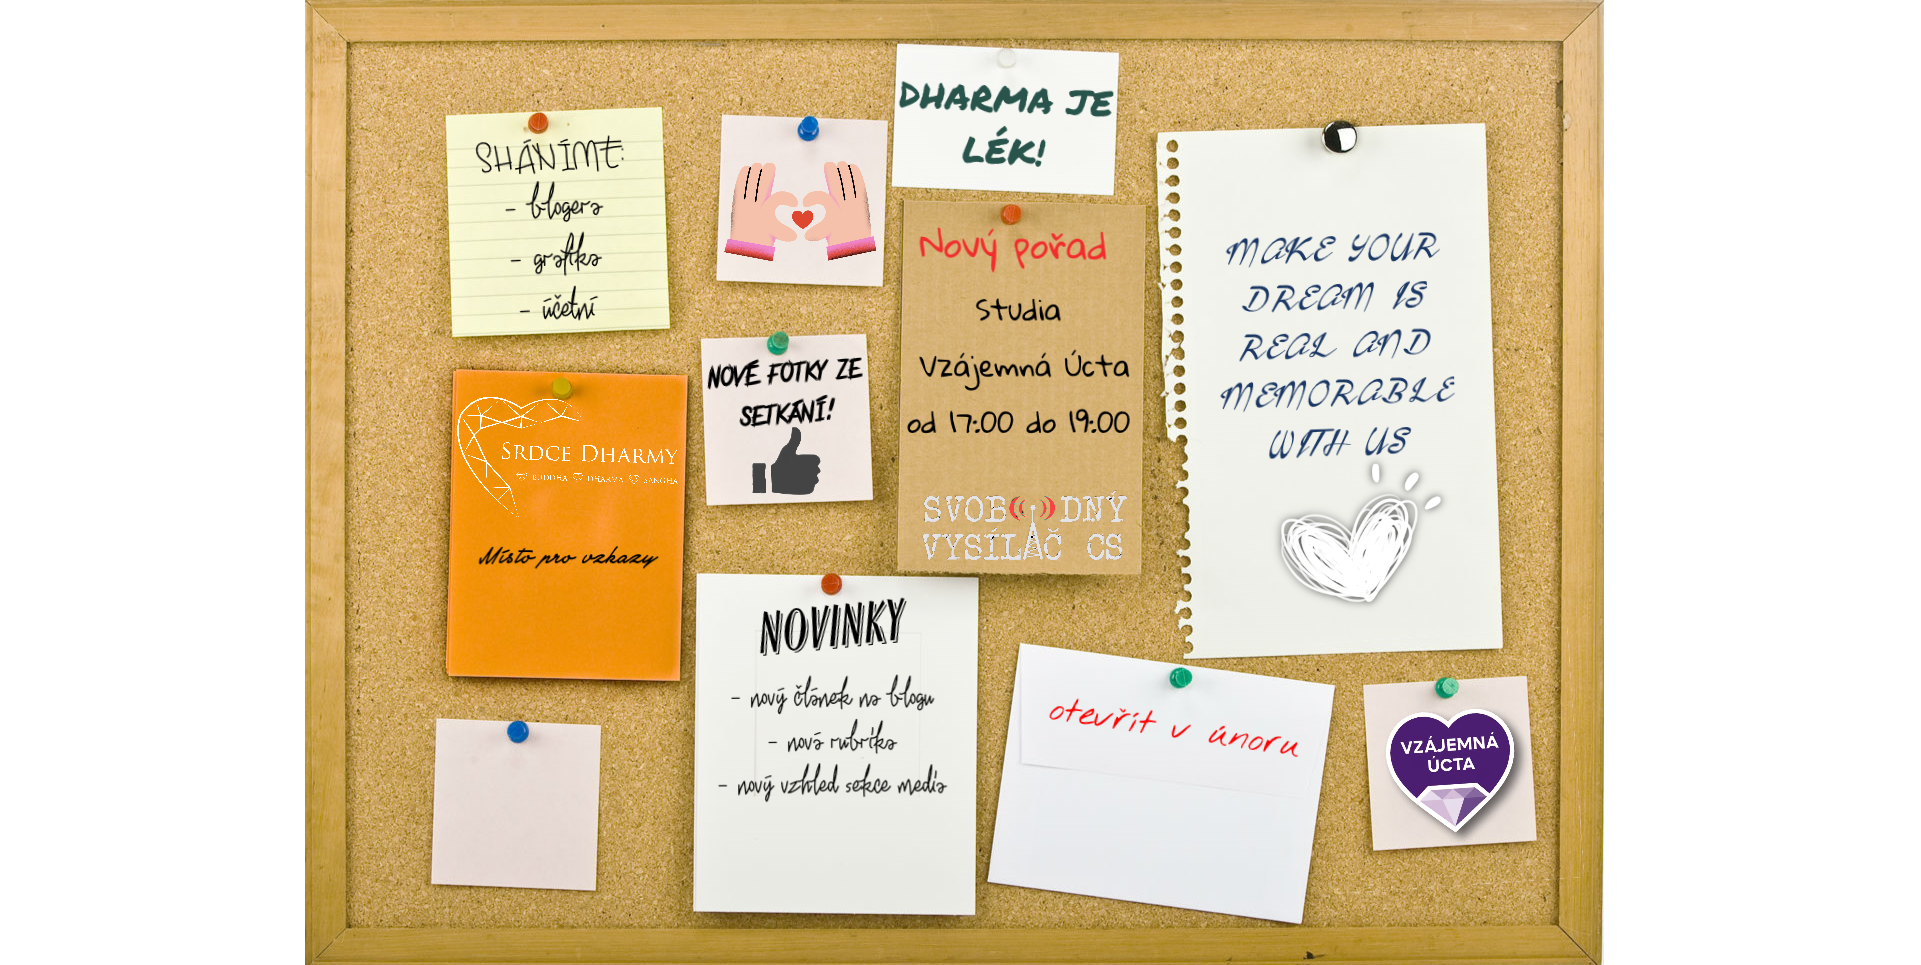 SHÁNÍME:
- blogera
- grafika
- účetní
DHARMA JE
LÉK!
Nový pořad
Studia
Vzájemná Úcta
od 17:00 do 19:00
SVOBODNÝ
VYSÍLAČ CS
MAKE YOUR
DREAM IS
REAL AND
MEMORABLE
WITH US
NOVÉ FOTKY ZE
SETKÁNÍ!
SRDCE DHARMY
BUDDHA DHARMA SANGHA
Místo pro vzkazy
NOVINKY
- nový článek na blogu
- nová rubrika
- nový vzhled sekce media
otevřít v únoru
VZÁJEMNÁ
ÚCTA